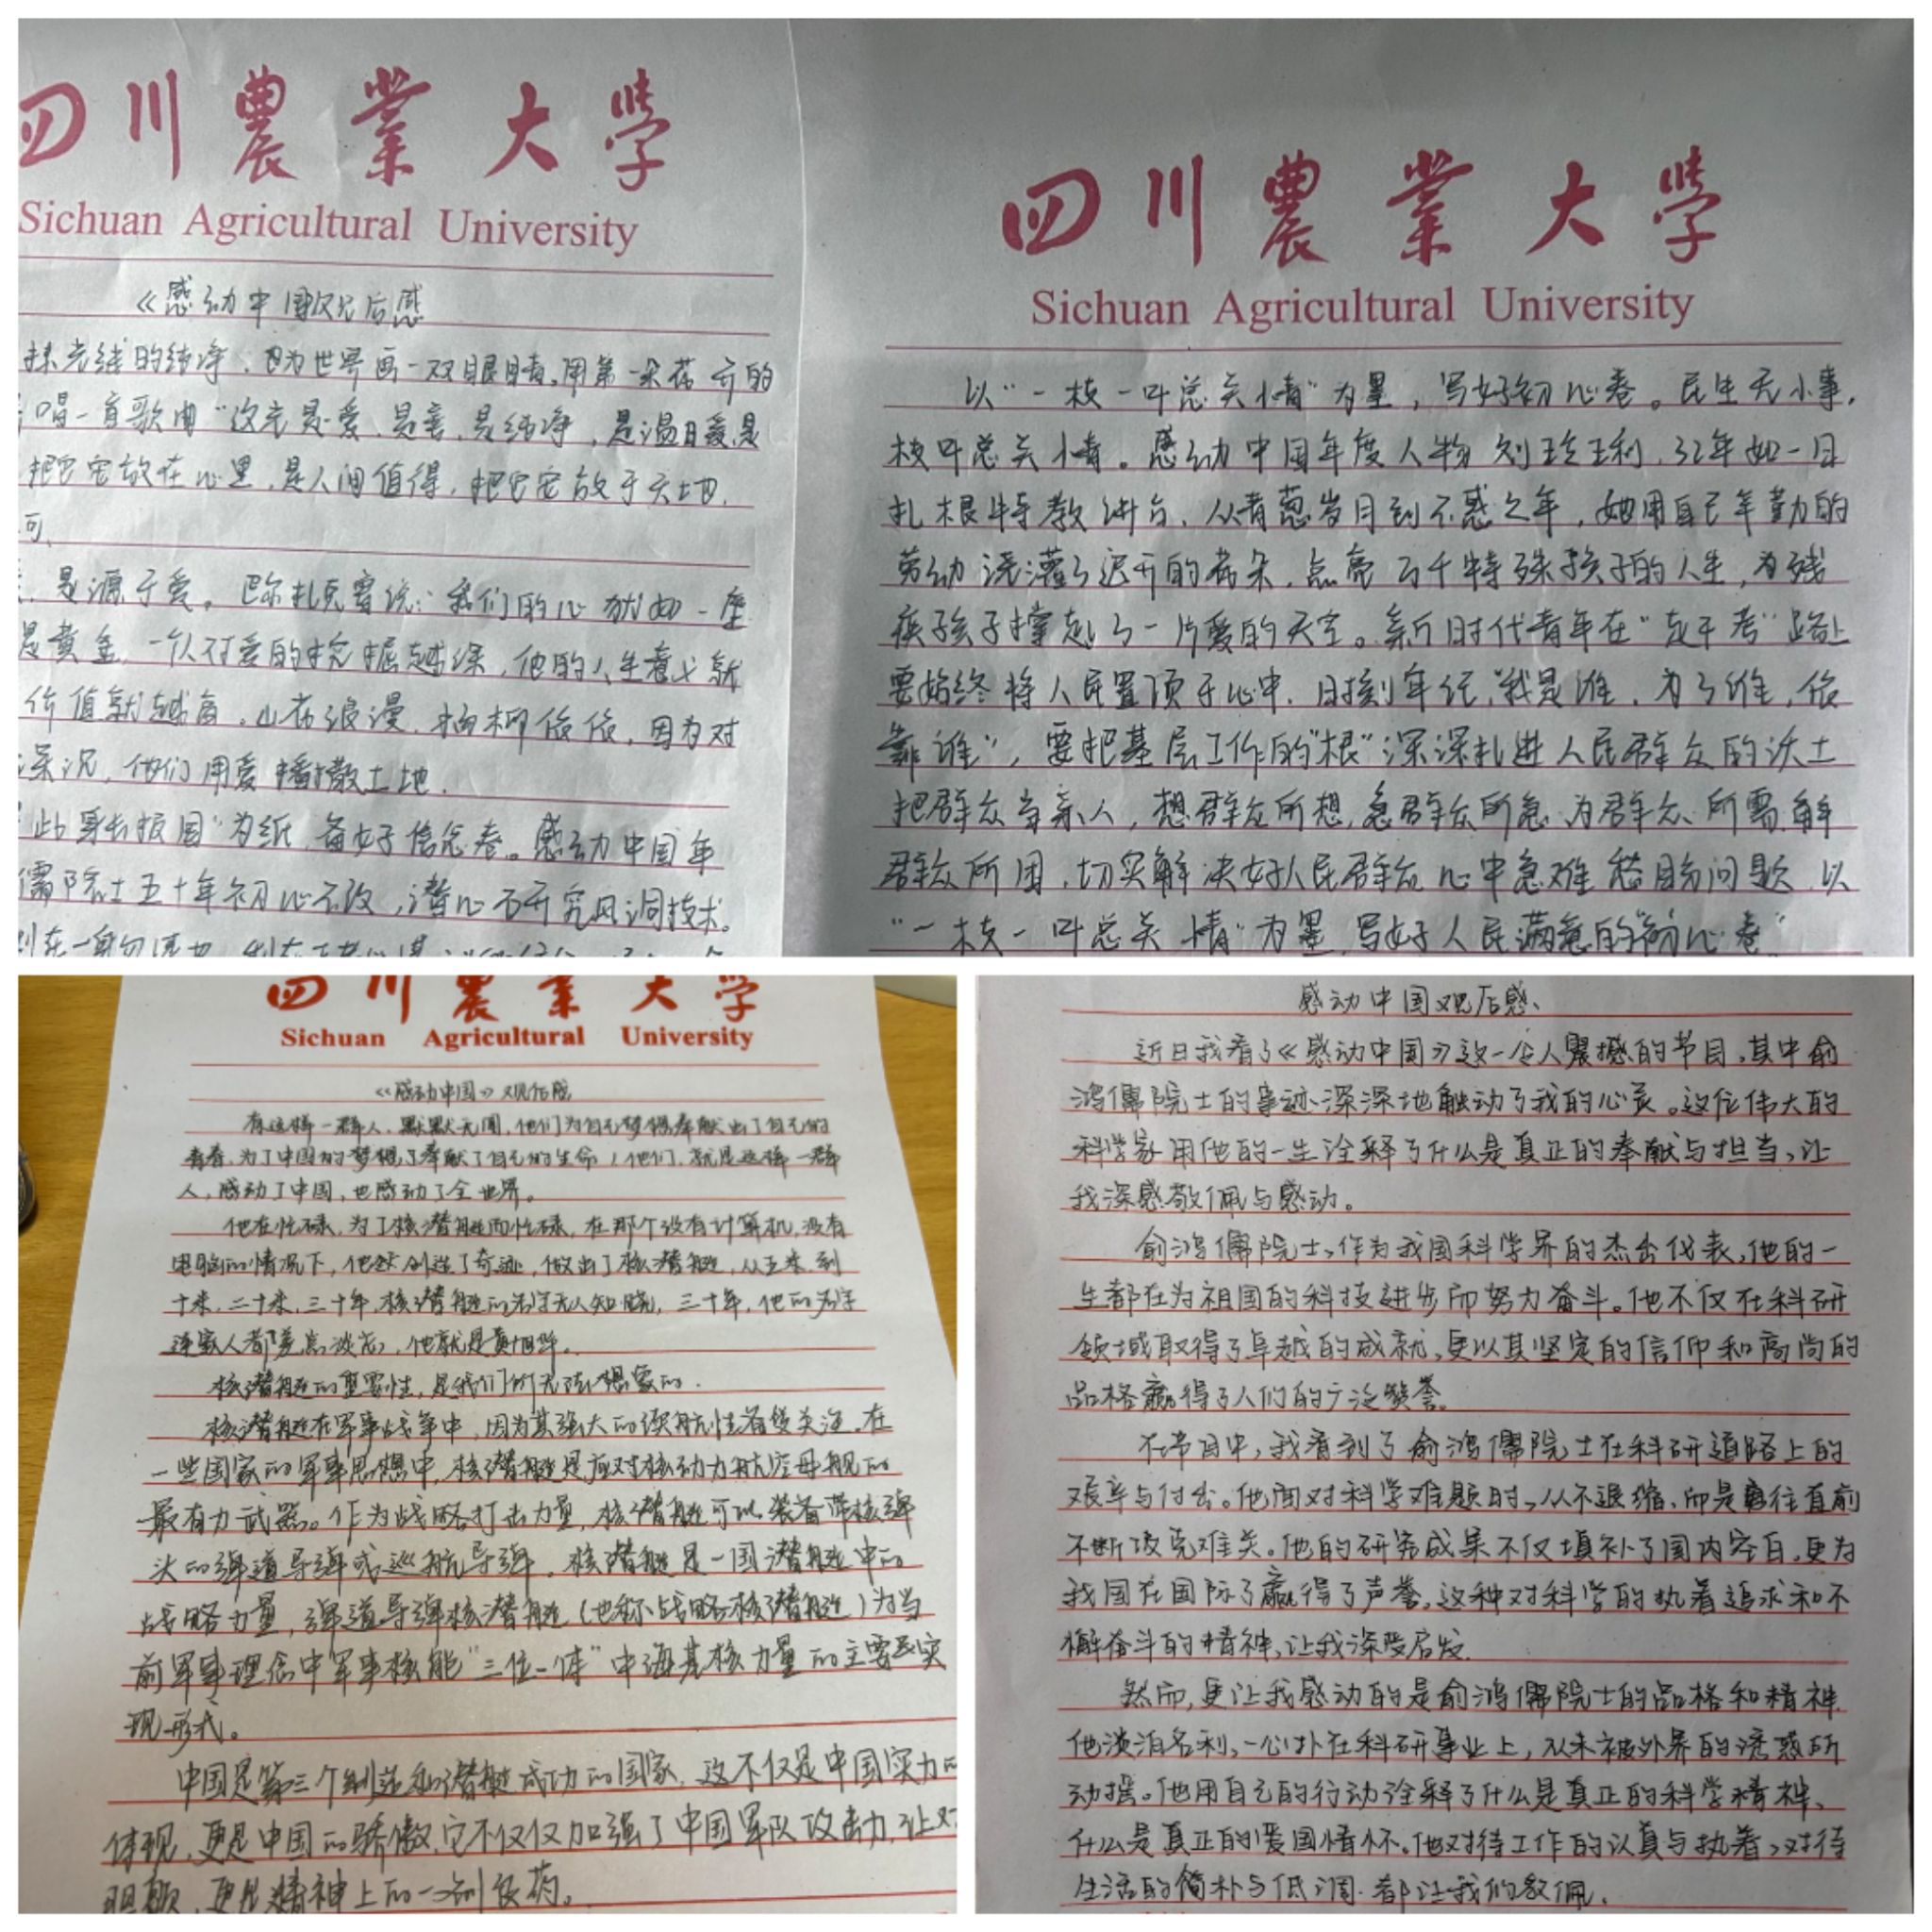 四川農業大学
Sichuan Agricultural University
《感动中国观后感
抹光线的纯净,因为世界画一双眼睛,用第一朵花开的
唱一首歌曲"这光是爱,是善,是纯净,是温暖是
把它安放在心里,是人间值得,把它安放于天地,
可,
是源于爱。巴尔扎克曾说:我们的心犹如一座
是黄金,一个人对爱的挖掘越深,他的人生意义就
价值就越高。山花浪漫,杨柳依依,因为对
深沉,他们用爱播撒土地.
此身长报国"为纸,备好信念卷。感动中国年
儒院士五十年初心不改,潜心研究风洞技术。
四川農業大学
Sichuan Agricultural University
以"一枝一叶总关情"为墨,写好初心卷。民生无小事,
枝叶总关情。感动中国年度人物刘玲琍,32年如一日
扎根特教讲台,从青葱岁月到不惑之年,她用自己年勤的
劳动浇灌了迟开的花朵,点亮百千特殊孩子的人生,为残
疾孩子撑起了一片爱的天空。新时代青年在"赶考"路上
要始终将人民置顶于心中,时刻牢记,"我是谁,为了谁,依
靠谁",要把基层工作的"根"深深扎进人民群众的沃土
把群众当亲人,想群众所想,急群众所急,为群众所需,解
群众所困,切实解决好人民群众心中急难愁盼问题,以
"一枝一叶总关情"为墨,写好人民满意的"初心卷"
四川農業大学
Sichuan Agricultural University
《感动中国》观后感
有这样一群人,默默无闻,他们为自己梦想奉献出了自己的
青春,为了中国的梦想了奉献了自己的生命,他们,就是这样一群
人,感动了中国,也感动了全世界。
他在忙碌,为了核潜艇而忙碌,在那个没有计算机,没有
电脑的情况下,他然创造了奇迹,做出了核潜艇,从五米,到
十米,二十米,三十年,核潜艇的名字无人知晓,三十年,他的名字
连家人都差点淡忘,他就是黄旭华。
核潜艇的重要性,是我们所无法想象的.
核潜艇在军事战争中,因为其强大的续航性备受关注,在
一些国家的军事思想中,核潜艇是应对核动力航空母舰的
最有力武器。作为战略打击力量,核潜艇可以装备带核弹
头的弹道导弹或巡航导弹。核潜艇是一国潜艇中的
战略力量,弹道导弹核潜艇(也称战略核潜艇)为当
前军事理念中军事核能"三位一体"中海基核力量的主要实
现形式。
中国是第三个制造和潜艇成功的国家,这不仅是中国实力的
体现,更是中国的骄傲,它不仅仅加强了中国军队攻击力,让对
更是精神上的一剂良药。
感动中国观后感、
近日我看了《感动中国》这一令人震撼的节目,其中俞
鸿儒院士的事迹深深地触动了我的心灵。这位伟大的
科学家用他的一生诠释了什么是真正的奉献与担当,让
我深感敬佩与感动。
俞鸿儒院士,作为我国科学界的杰出代表,他的一
生都在为祖国的科技进步而努力奋斗。他不仅在科研
领域取得了卓越的成就,更以其坚定的信仰和高尚的
品格赢得了人们的广泛赞誉。
在节目中,我看到了俞鸿儒院士在科研道路上的
艰辛与付出。他面对科学难题时,从不退缩,而是勇往直前
不断攻克难关。他的研究成果不仅填补了国内空白,更为
我国在国际了赢得了声誉,这种对科学的执着追求和不
懈奋斗的精神,让我深受启发.
然而,更让我感动的是俞鸿儒院士的品格和精神.
他淡泊名利,一心扑在科研事业上,从未被外界的诱惑所
动摇。他用自己的行动诠释了什么是真正的科学精神、
什么是真正的爱国情怀。他对待工作的认真与执着,对待
生活的简朴与低调.都让我们敬佩.